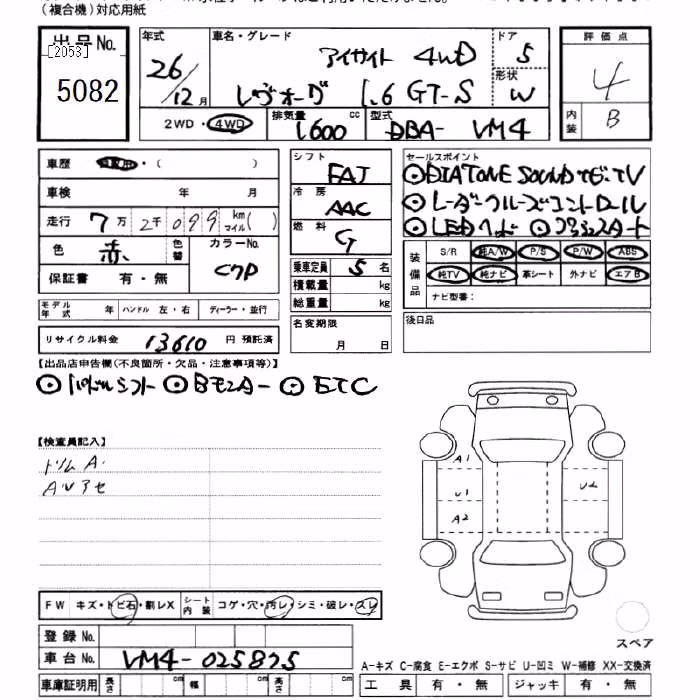 (複合機)対応用紙
出品No.
[2053]
5082
年式
26/12月
車名・グレード
アイサイト 4WD
レヴォーグ 1.6 GT-S
ドア
5
形状
W
評価点
4
内装
B
2WD・4WD
排気量
1600 cc
型式
DBA- VM4
車歴
自家用・( )
車検 年 月
走行 7万2千099 km マイル( )
色 赤 色替
カラーNo.
C7P
保証書 有・無
モデル年式 年 ハンドル 左・右 ディーラー・並行
リサイクル料金 13610 円 預託済
シフト
FAT
冷房
AAC
燃料
G
乗車定員 5 名
積載量 kg
総重量 kg
名変期限
月 日
セールスポイント
⊙DIATONE SOUND ナビ・TV
⊙レーダークルーズコントロール
⊙LEDヘッド ⊙プッシュスタート
装備品
S/R 純A/W P/S P/W ABS
純TV 純ナビ 革シート 外ナビ エアB
ナビ型番:
後日品
【出品店申告欄(不良箇所・欠品・注意事項等)】
⊙パドルシフト ⊙Bモニター ⊙ETC
【検査員記入】
トリムA.
AWアセ
A1
U1
A2
U2
FW キズ・トビ石・割レX シート内装 コゲ・穴・汚レ・シミ・破レ・スレ
登録No.
車台No. VM4-025875
車庫証明用 長さ cm 幅 cm 高さ cm
スペア
A-キズ C-腐食 E-エクボ S-サビ U-凹ミ W-補修 XX-交換済
工具 有・無 ジャッキ 有・無